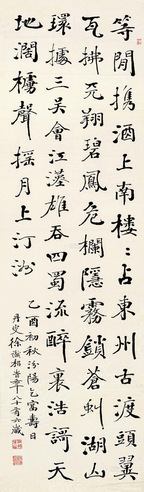 等閒携酒上南樓〻占東州古渡頭翼
瓦拂天翔碧鳳危欄隱霧鎖蒼虯湖山
環據三吳會江漢雄吞四蜀流醉裏浩謌天
地濶櫓聲搖月上汀洲
乙酉初秋汾陽乞富壽日
叟徐八十有六歲